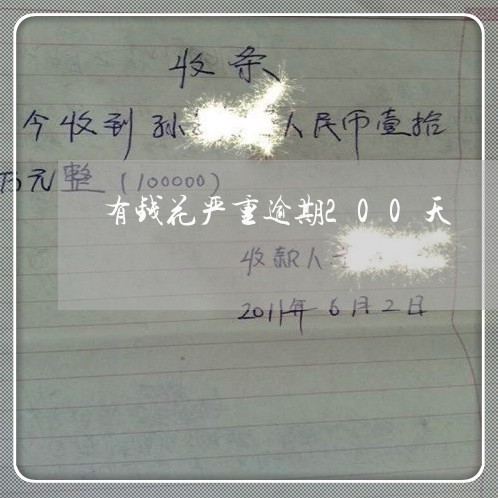 收条
今收到孙 人民币壹拾
万元整(100000)
有钱花严重逾期200天
收款人
2011年6月2日